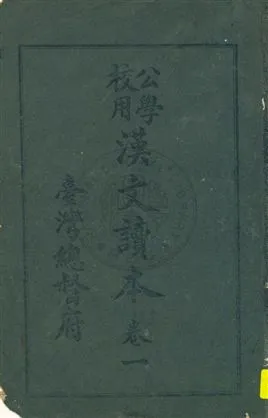 公學校用
漢文讀本 卷一
臺灣總督府